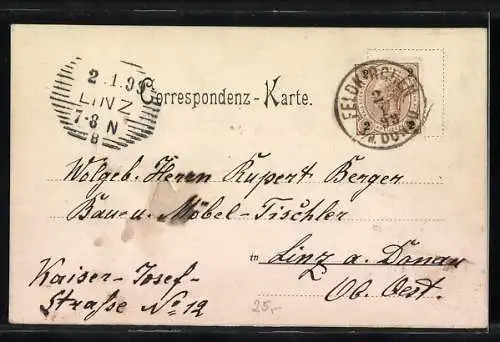 2.1.99
LINZ
7-8 N
8
Correspondenz-Karte.
FELDKIRCHEN
a/d. DONAU
2 2
2 2
Wolgeb. Herrn Rupert Berger
Bau u. Möbel-Tischler
in Linz a. Donau
Kaiser-Josef-
Ob. Oest.
Straße No 12
25,-